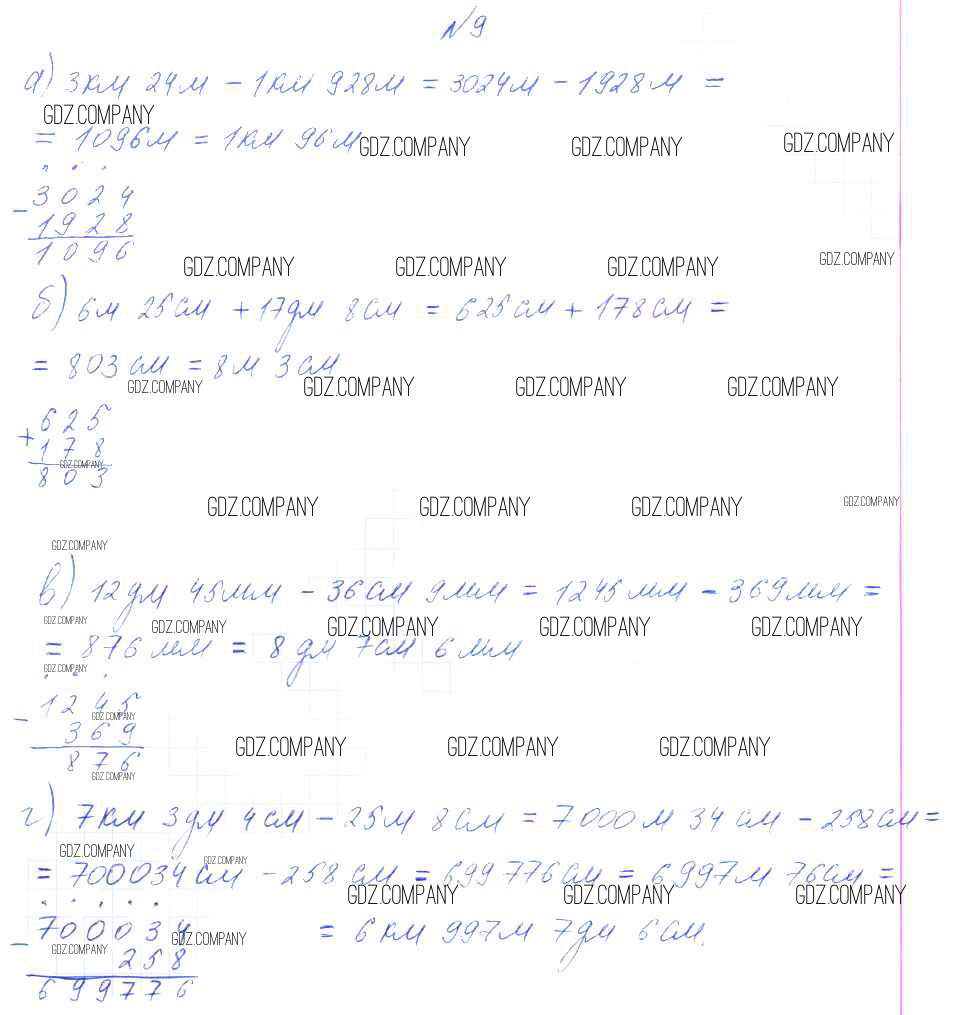 №9
а) 3км 24м - 1км 928м = 3024м - 1928м =
GDZ.COMPANY
= 1096м = 1км 96м
GDZ.COMPANY GDZ.COMPANY GDZ.COMPANY
- 3024
1928
1096
GDZ.COMPANY GDZ.COMPANY GDZ.COMPANY GDZ.COMPANY
б) 6м 25см + 17дм 8см = 625см + 178см =
= 803см = 8м 3см
GDZ.COMPANY GDZ.COMPANY GDZ.COMPANY GDZ.COMPANY
+ 625
178
GDZ.COMPANY
803
GDZ.COMPANY GDZ.COMPANY GDZ.COMPANY GDZ.COMPANY
GDZ.COMPANY
в) 12дм 45мм - 36см 9мм = 1245мм - 369мм =
GDZ.COMPANY GDZ.COMPANY GDZ.COMPANY GDZ.COMPANY GDZ.COMPANY
= 876мм = 8дм 7см 6мм
GDZ.COMPANY
- 1245
GDZ.COMPANY
369
876
GDZ.COMPANY GDZ.COMPANY GDZ.COMPANY
GDZ.COMPANY
г) 7км 3дм 4см - 25м 8см = 7000м 34см - 258см =
GDZ.COMPANY GDZ.COMPANY
= 700034см - 258см = 699776см = 6997м 76см =
GDZ.COMPANY GDZ.COMPANY GDZ.COMPANY
- 700034 = 6км 997м 7дм 6см.
GDZ.COMPANY
GDZ.COMPANY
258
699776